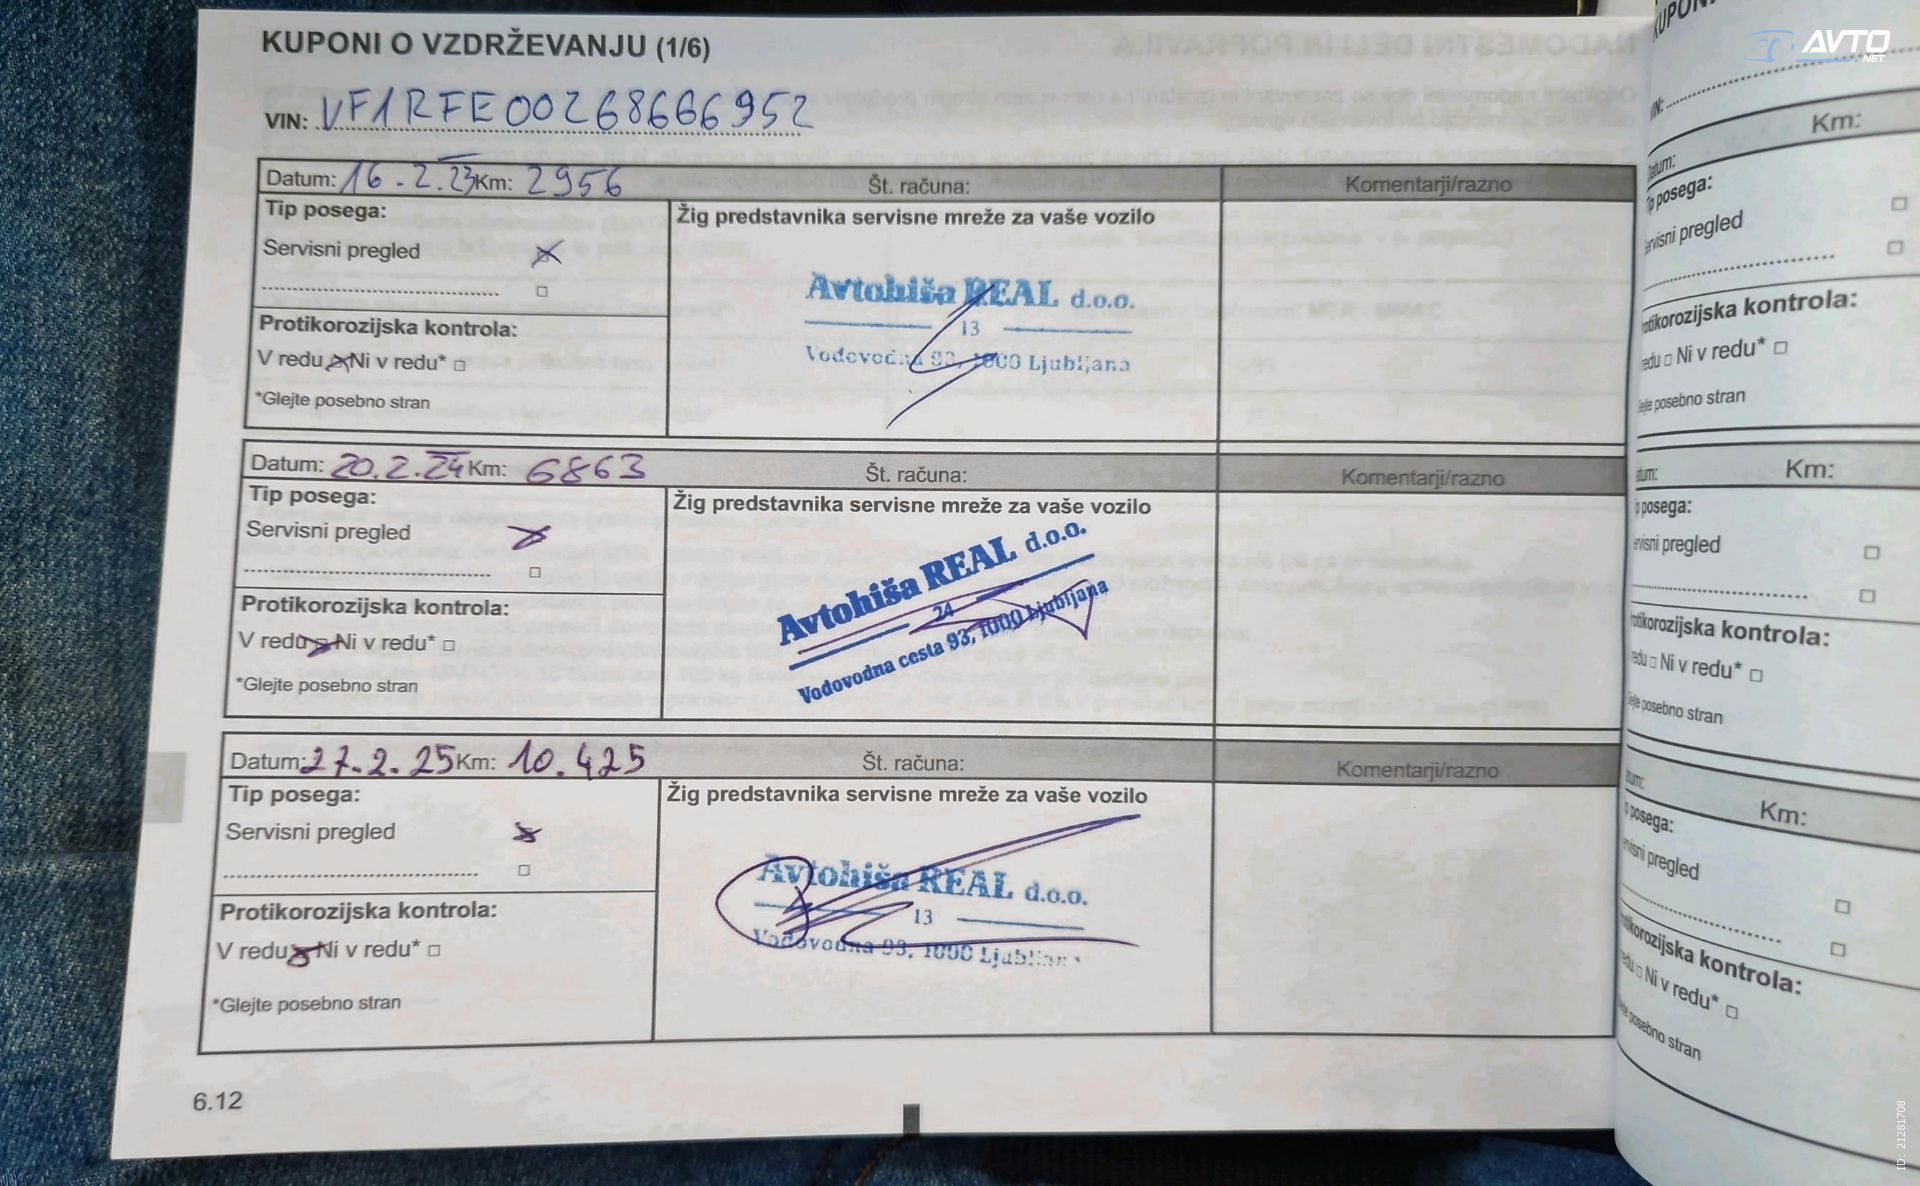 KUPONI O VZDRŽEVANJU (1/6)
VIN: VF1RFE00268666952
Datum: 16.2.23 Km: 2956 Št. računa: Komentarji/razno
Tip posega:
Žig predstavnika servisne mreže za vaše vozilo
Servisni pregled
Avtohiša REAL d.o.o.
13
Vodovodna 93, 1000 Ljubljana
Protikorozijska kontrola:
V redu Ni v redu*
*Glejte posebno stran
Datum: 20.2.24 Km: 6863 Št. računa: Komentarji/razno
Tip posega:
Žig predstavnika servisne mreže za vaše vozilo
Servisni pregled
Avtohiša REAL d.o.o.
24
Vodovodna cesta 93, 1000 Ljubljana
Protikorozijska kontrola:
V redu Ni v redu*
*Glejte posebno stran
Datum: 27.2.25 Km: 10.425 Št. računa: Komentarji/razno
Tip posega:
Žig predstavnika servisne mreže za vaše vozilo
Servisni pregled
Avtohiša REAL d.o.o.
13
Vodovodna 93, 1000 Ljubljana
Protikorozijska kontrola:
V redu Ni v redu*
*Glejte posebno stran
6.12
AVTO
NET
VIN:
Km:
posega:
pregled
kontrola:
Ni v redu*
posebno stran
Km:
posega:
pregled
kontrola:
Ni v redu*
posebno stran
Km:
posega:
pregled
kontrola:
Ni v redu*
posebno stran
ID: 21281708